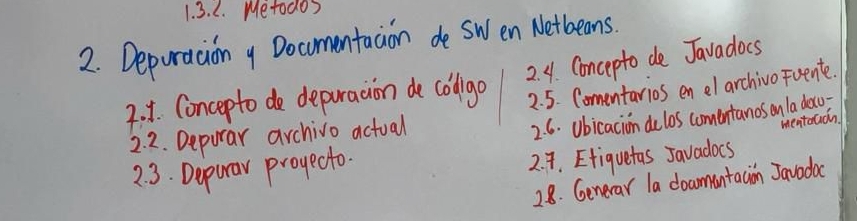 1.3.2. Métodos
2. Depuración y Documentación de SW en Netbeans.
2.1. Concepto de depuración de código
2.2. Depurar archivo actual
2.3. Depurar proyecto.
2.4. Concepto de Javadocs
2.5. Comentarios en el archivo Fuente.
2.6. Ubicación de los comentarios en la docu-
mentación.
2.7. Etiquetas Javadocs
2.8. Generar la documentación Javadoc